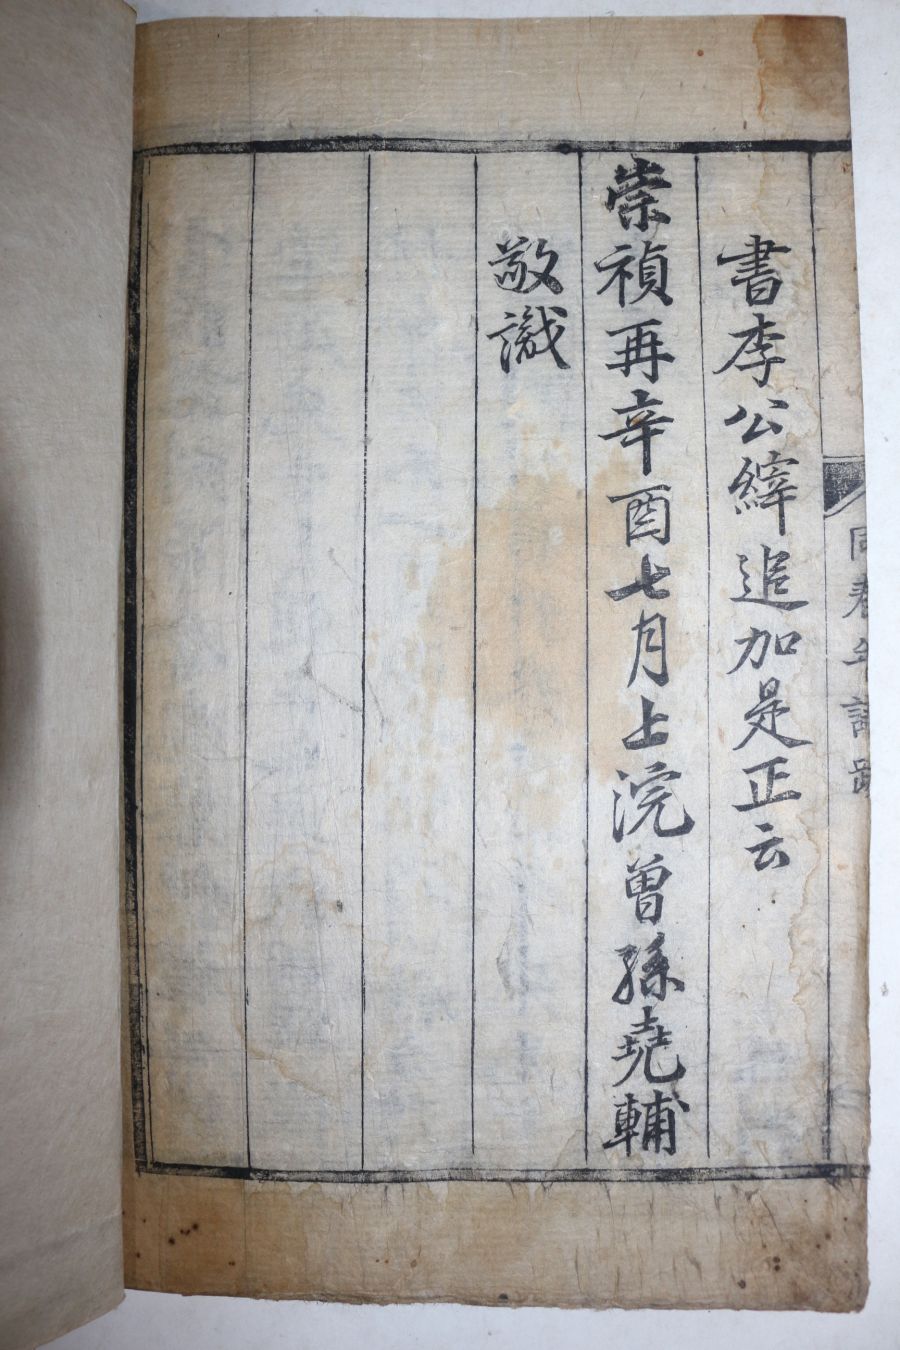 同春年譜跋
書李公縡追加是正云
崇禎再辛酉七月上浣曾孫堯輔
敬識